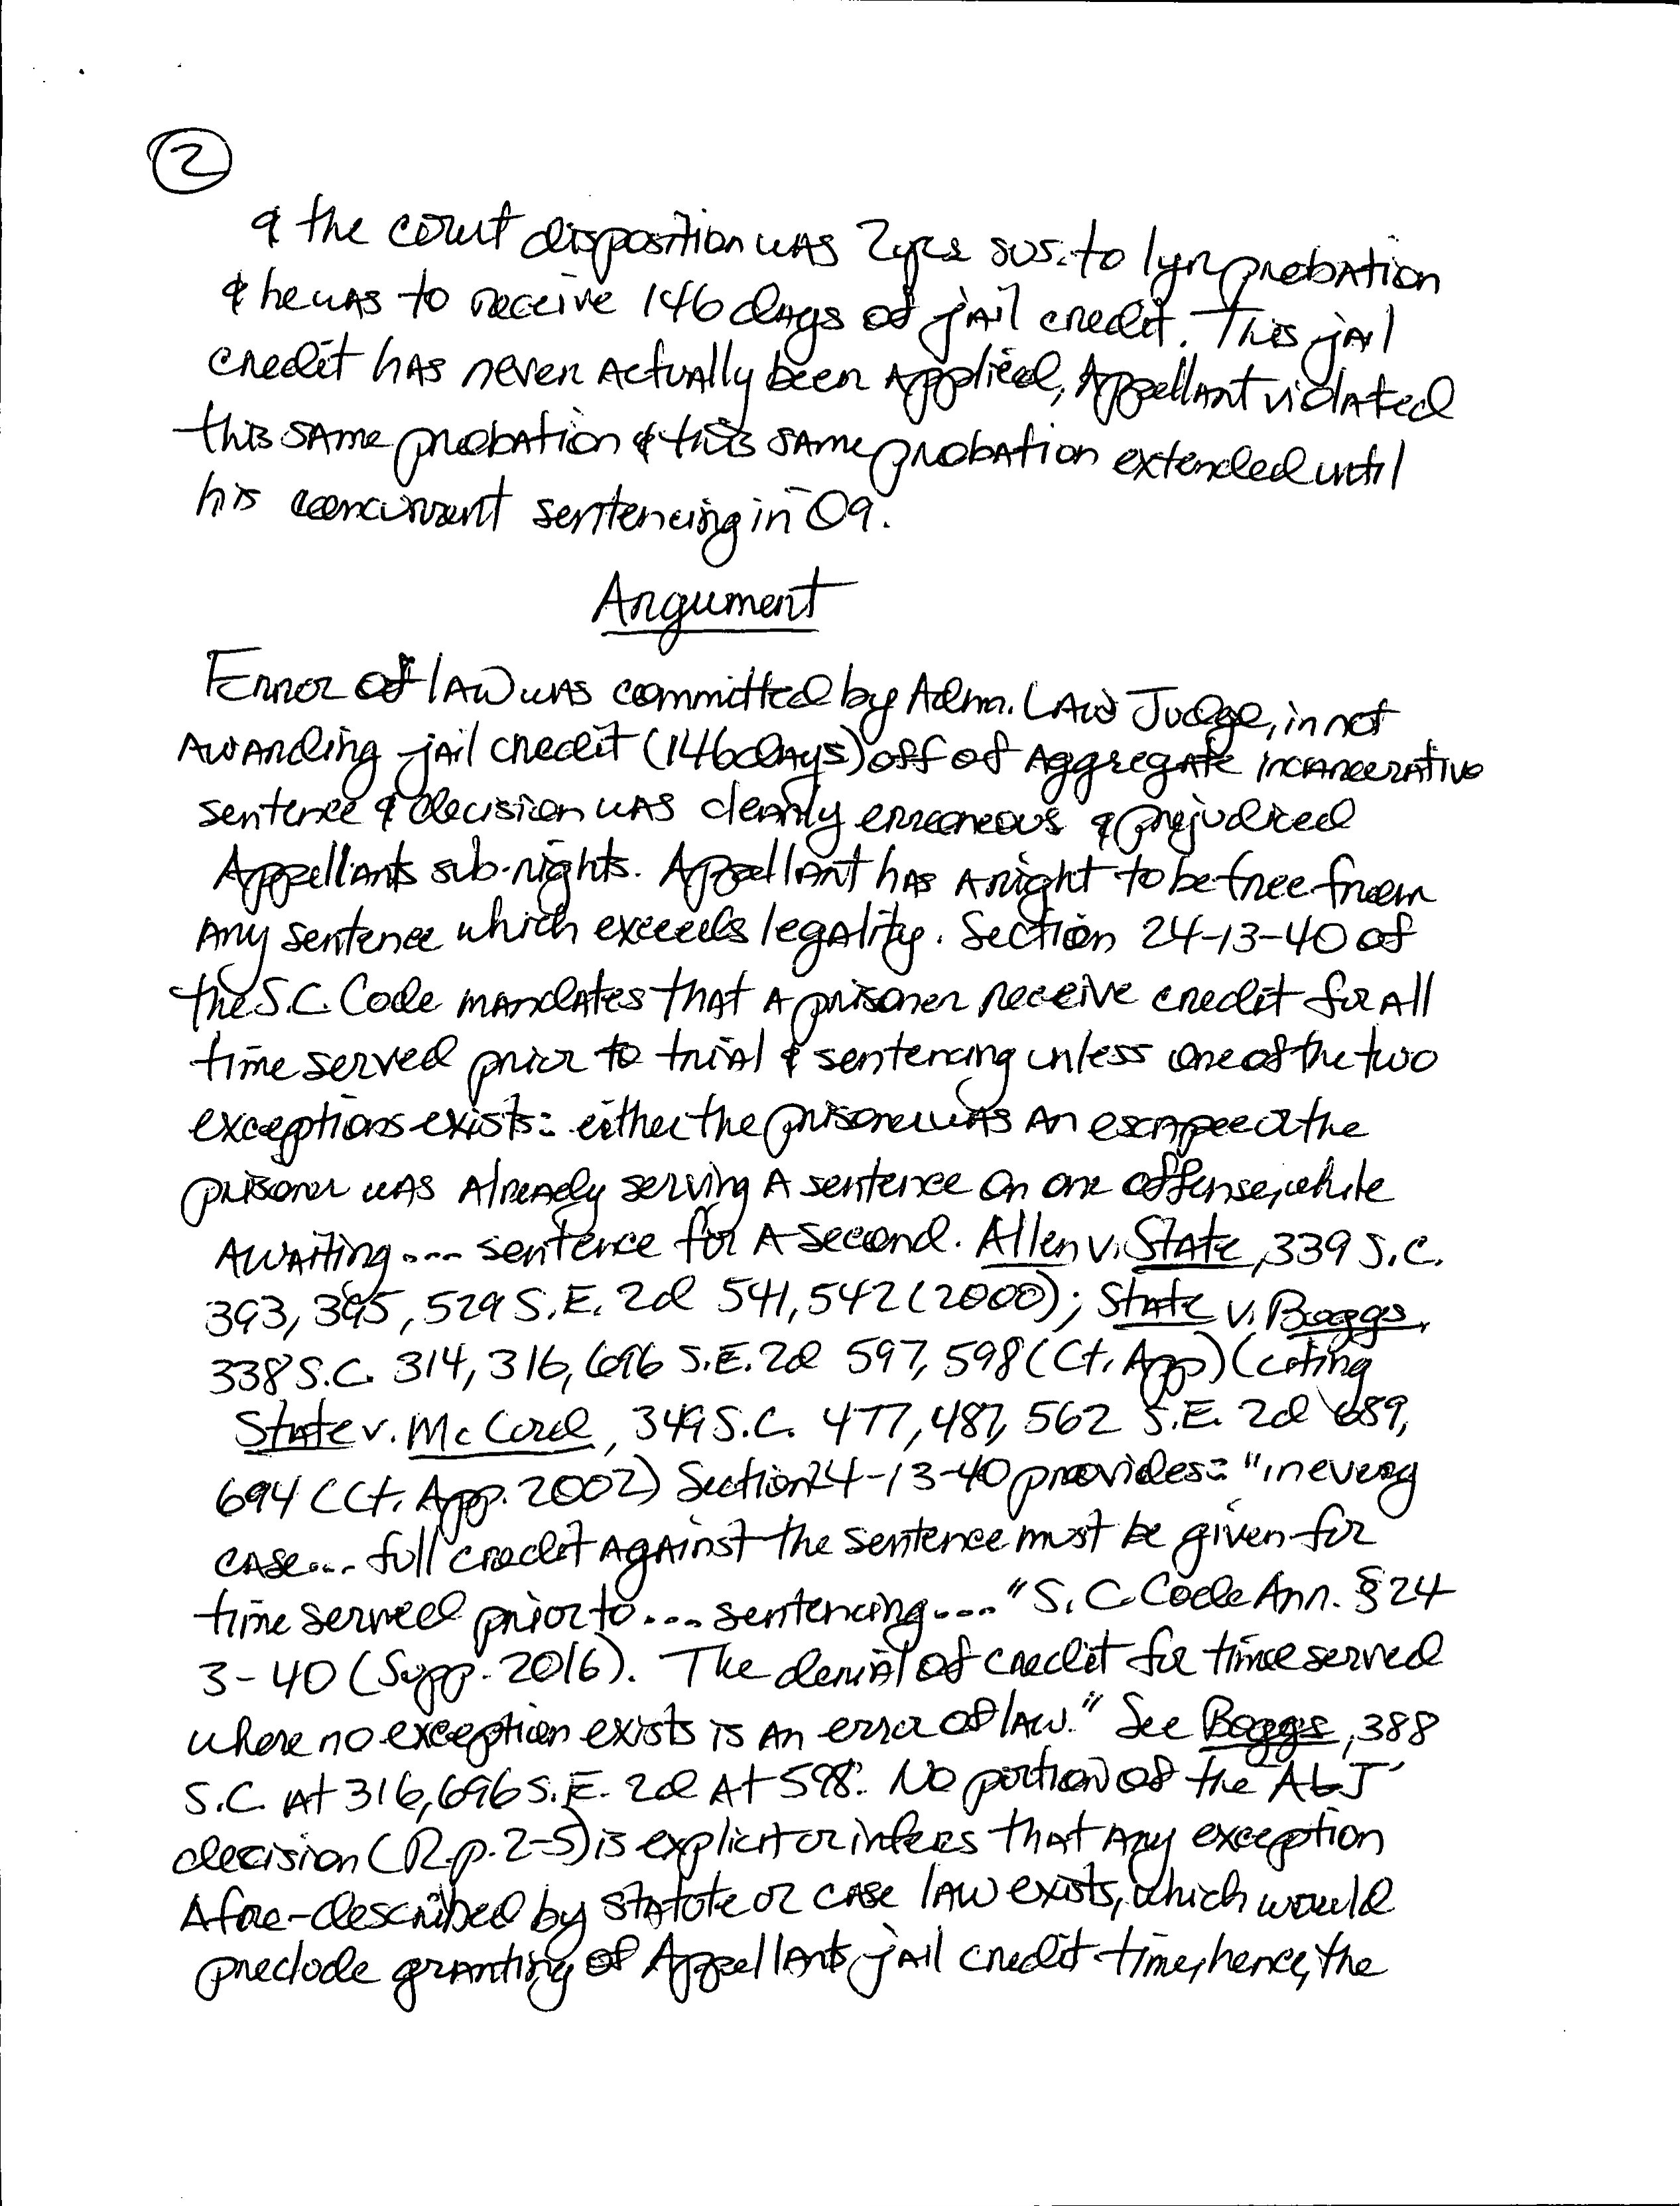 2
& the court disposition was 2yrs sus. to 1yr probation
& he was to receive 146 days of jail credit. This jail
credit has never actually been applied, Appellant violated
this same probation & this same probation extended until
his concurrent sentencing in 09.
Argument
Error of law was committed by Adm. Law Judge, in not
awarding jail credit (146 days) off of aggregate incarcerative
sentence & decision was clearly erroneous & prejudiced
Appellants sub. rights. Appellant has a right to be free from
any sentence which exceeds legality. Section 24-13-40 of
the S.C. Code mandates that a prisoner receive credit for all
time served prior to trial & sentencing unless one of the two
exceptions exists: either the prisoner was an escapee or the
prisoner was already serving a sentence on one offense, while
awaiting.... sentence for a second. Allen v. State, 339 S.C.
393, 395, 529 S.E. 2d 541, 542 (2000); State v. Boggs,
338 S.C. 314, 316, 696 S.E. 2d 597, 598 (Ct. App) (citing
State v. McCord, 349 S.C. 477, 487, 562 S.E. 2d 689,
694 (Ct. App. 2002) Section 24-13-40 provides: "in every
case.... full credit against the sentence must be given for
time served prior to.... sentencing...." S.C. Code Ann. § 24
3-40 (Supp. 2016). The denial of credit for time served
where no exception exists is an error of law." See Boggs, 388
S.C. at 316, 696 S.E. 2d at 598. No portion of the ALJ'
decision (R.p. 2-5) is explicit or infers that any exception
afore-described by statute or case law exists, which would
preclude granting of Appellants jail credit time, hence, the